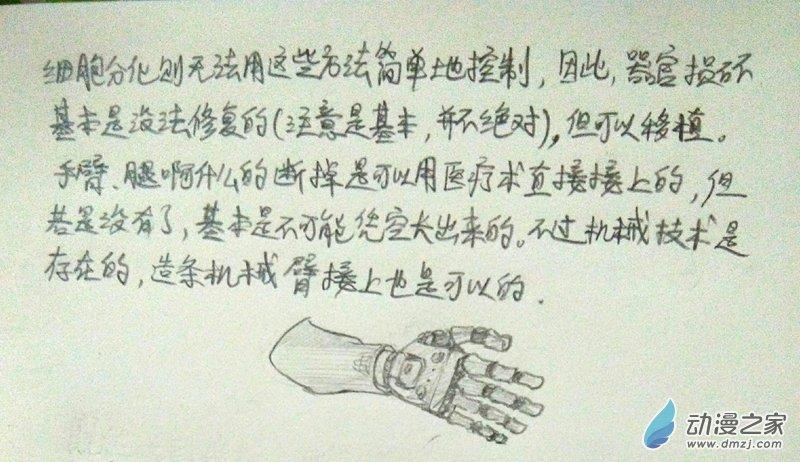 细胞分化则无法用这些方法简单地控制，因此，器官损坏
基本是没法修复的（注意是基本，并不绝对），但可以移植。
手臂、腿啊什么的断掉是可以用医疗术直接接上的，但
若是没有了，基本是不可能凭空长出来的。不过机械技术是
存在的，造条机械臂接上也是可以的.
动漫之家
www.dmzj.com